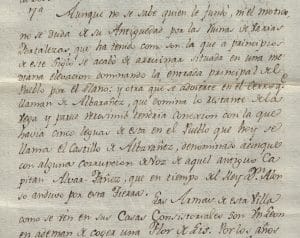 7ª
Aunque no se sabe quien le fundó, ni el motivo
no se duda de su Antiguedad por las Ruinas de varias
fortalezas, que ha tenido como son la que a principios
de este Siglo se acabó de arruinar situada en una me-
diana elevacion dominando la entrada principal del
Pueblo por el llano; y otra que se advierte en el Cerro q.e
llaman de Albarañez, que domina lo restante de la
Vega y parece verosimil tendria conexion con la que
havia cinco leguas de esta en el Pueblo que hoy se
llama el Castillo de Albarañez, denominado aunque
con alguna corrupcion de Voz de aquel antiguo Ca-
pitan Alvar Yañez, que en tiempo del Rey D.n Alon-
so anduvo por esta Tierra.
Las Armas de esta Villa
como se ven en sus Casas Consistoriales son un Leon
en ademan de coger una Flor de Lis. Por los años